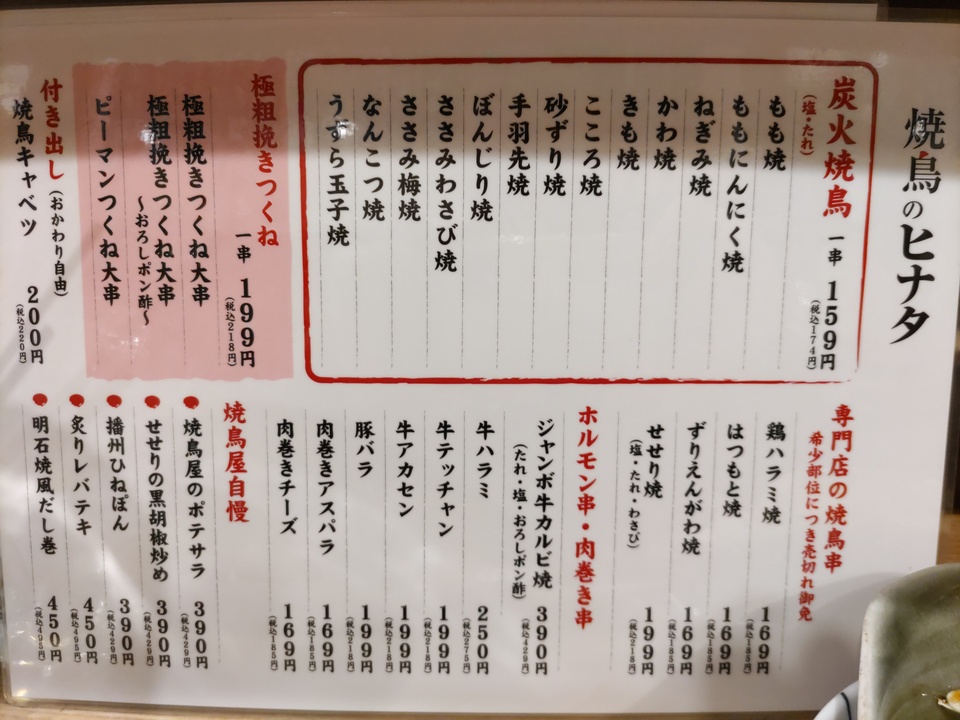 焼鳥のヒナタ
炭火焼鳥 一串 159円
(塩・たれ) (税込174円)
もも焼
ももにんにく焼
ねぎみ焼
かわ焼
きも焼
こころ焼
砂ずり焼
手羽先焼
ぼんじり焼
ささみわさび焼
ささみ梅焼
なんこつ焼
うずら玉子焼
極粗挽きつくね
一串 199円
(税込218円)
極粗挽きつくね大串
極粗挽きつくね大串
〜おろしポン酢〜
ピーマンつくね大串
付き出し(おかわり自由)
焼鳥キャベツ 200円
(税込220円)
専門店の焼鳥串
希少部位につき売切れ御免
鶏ハラミ焼 169円
(税込185円)
はつもと焼 169円
(税込185円)
ずりえんがわ焼 169円
(税込185円)
せせり焼 199円
(塩・たれ・わさび) (税込218円)
ホルモン串・肉巻き串
ジャンボ牛カルビ焼 390円
(たれ・塩・おろしポン酢) (税込429円)
牛ハラミ 250円
(税込275円)
牛テッチャン 199円
(税込218円)
牛アカセン 199円
(税込218円)
豚バラ 199円
(税込218円)
肉巻きアスパラ 169円
(税込185円)
肉巻きチーズ 169円
(税込185円)
焼鳥屋自慢
焼鳥屋のポテサラ 390円
(税込429円)
せせりの黒胡椒炒め 390円
(税込429円)
播州ひねぽん 390円
(税込429円)
炙りレバテキ 450円
(税込495円)
明石焼風だし巻 450円
(税込495円)